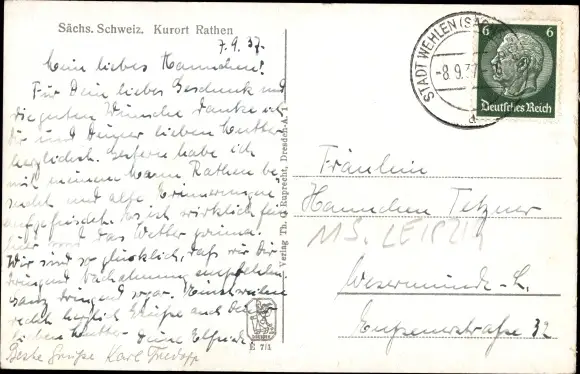 Sächs. Schweiz. Kurort Rathen
7.9.37.
Mein liebes Hannchen!
Für Dein liebes Geschenk und
die guten Wünsche danke ich
Dir und Deiner lieben Mutter
herzlichst. Gestern habe ich
mit meinem Mann Rathen be-
sucht und alte Erinnerungen
aufgefrischt. Es ist wirklich fein
hier und das Wetter prima.
Wir sind so glücklich, daß wir Dir
dringend Nachahmung empfehlen
ganz dringend sogar. Einstweilen
recht herzlich Grüße auch Deiner
lieben Mutter. Deine Elfriede
Beste Grüße Karl
Verlag Th. G. Ruprecht, Dresden-A. 1
E 7/1
STADT WEHLEN (SA
-8.9.37
d
6 6
Deutsches Reich
Fräulein
Hannchen Tetzner
MS. LEIPZIG
Wesermünde-L.
straße 32